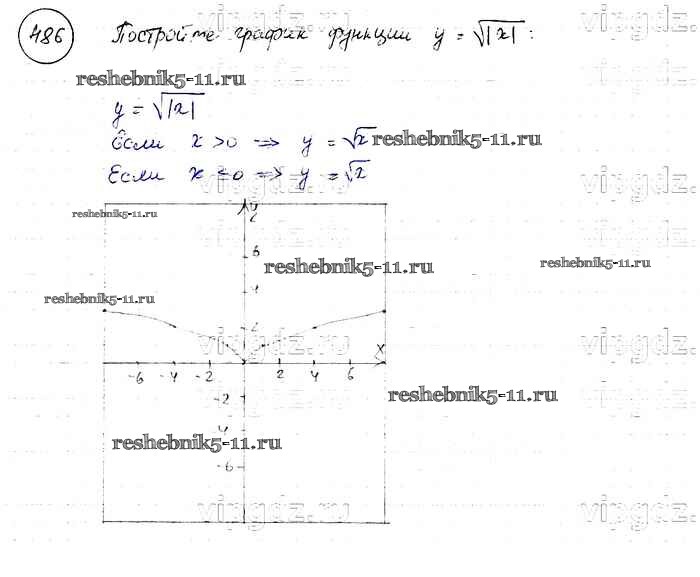 486 Постройте график функции y = √|x| :
reshebnik5-11.ru
y = √|x|
Если x > 0 => y = √x
reshebnik5-11.ru
Если x ≤ 0 => y = √x
vipgdz.ru
vipgdz.ru
vipgdz.ru
reshebnik5-11.ru
y
6
reshebnik5-11.ru
reshebnik5-11.ru
reshebnik5-11.ru
2
vipgdz.ru
x
vipgdz.ru
-6 -4 -2 2 4 6
-2
vipgdz.ru
reshebnik5-11.ru
reshebnik5-11.ru
-6
vipgdz.ru
vipgdz.ru